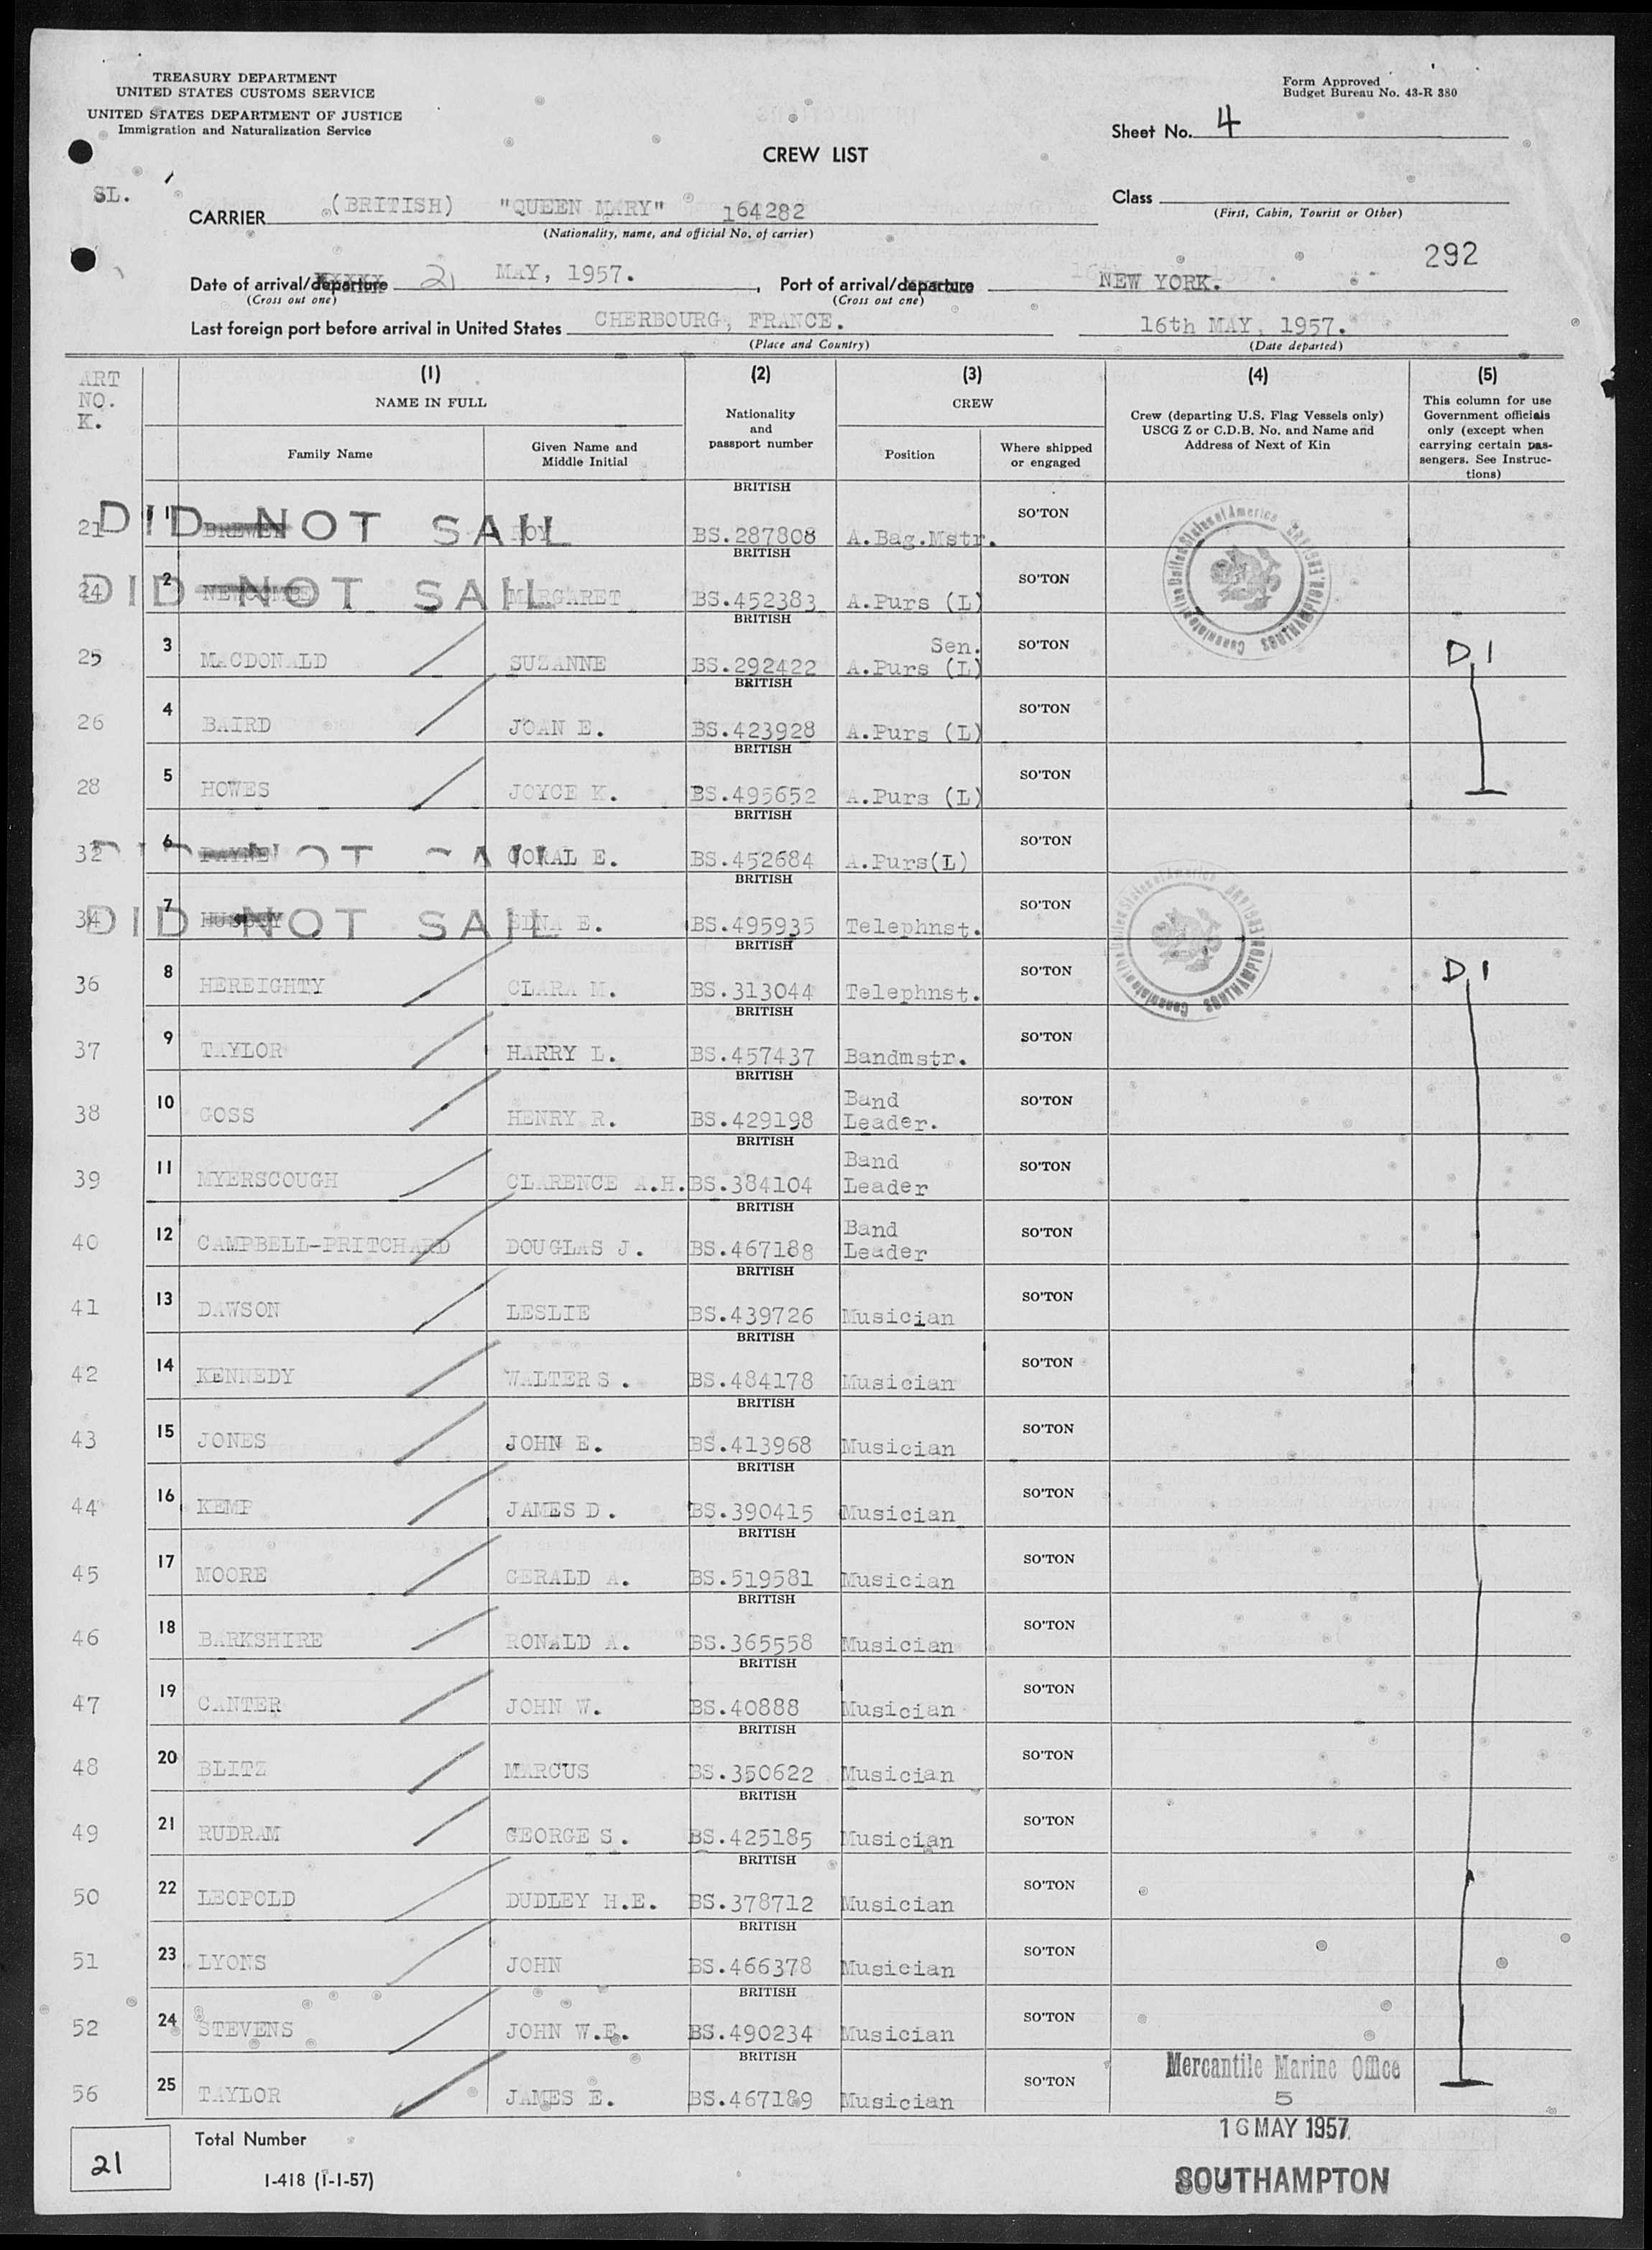 TREASURY DEPARTMENT
UNITED STATES CUSTOMS SERVICE
UNITED STATES DEPARTMENT OF JUSTICE
Immigration and Naturalization Service
Form Approved
Budget Bureau No. 43-R 380
Sheet No. 4
CREW LIST
SL.
CARRIER (BRITISH) "QUEEN MARY" 164282
(Nationality, name, and official No. of carrier)
Class
(First, Cabin, Tourist or Other)
292
Date of arrival/departure 21 MAY, 1957.
(Cross out one)
Port of arrival/departure NEW YORK.
(Cross out one)
Last foreign port before arrival in United States CHERBOURG, FRANCE. 16th MAY, 1957.
(Place and Country) (Date departed)
ART NO. K.
(1) (2) (3) (4) (5)
NAME IN FULL
Family Name
Given Name and Middle Initial
Nationality and passport number
CREW
Position
Where shipped or engaged
Crew (departing U.S. Flag Vessels only) USCG Z or C.D.B. No. and Name and Address of Next of Kin
This column for use Government officials only (except when carrying certain passengers. See Instructions)
BRITISH
21 1 DID NOT SAIL ROY BS.287808 A.Bag.Mstr. SO'TON
BRITISH
24 2 DID NOT SAIL NEWCOMBE MARGARET BS.452383 A.Purs (L) SO'TON
BRITISH
25 3 MACDONALD SUZANNE BS.292422 Sen. A.Purs (L) SO'TON D.1
BRITISH
26 4 BAIRD JOAN E. BS.423928 A.Purs (L) SO'TON
BRITISH
28 5 HOWES JOYCE K. BS.495652 A.Purs (L) SO'TON
BRITISH
32 6 DID NOT SAIL PAYNE CORAL E. BS.452684 A.Purs(L) SO'TON
BRITISH
34 7 DID NOT SAIL EDNA E. BS.495935 Telephnst. SO'TON
BRITISH
36 8 HEREIGHTY CLARA M. BS.313044 Telephnst. SO'TON D.1
BRITISH
37 9 TAYLOR HARRY L. BS.457437 Bandmstr. SO'TON
BRITISH
38 10 GOSS HENRY R. BS.429198 Band Leader. SO'TON
BRITISH
39 11 MYERSCOUGH CLARENCE A.H. BS.384104 Band Leader SO'TON
BRITISH
40 12 CAMPBELL-PRITCHARD DOUGLAS J. BS.467188 Band Leader SO'TON
BRITISH
41 13 DAWSON LESLIE BS.439726 Musician SO'TON
BRITISH
42 14 KENNEDY WALTER S. BS.484178 Musician SO'TON
BRITISH
43 15 JONES JOHN E. BS.413968 Musician SO'TON
BRITISH
44 16 KEMP JAMES D. BS.390415 Musician SO'TON
BRITISH
45 17 MOORE GERALD A. BS.519581 Musician SO'TON
BRITISH
46 18 BARKSHIRE RONALD A. BS.365558 Musician SO'TON
BRITISH
47 19 CANTER JOHN W. BS.40888 Musician SO'TON
BRITISH
48 20 BLITZ MARCUS BS.350622 Musician SO'TON
BRITISH
49 21 RUDRAM GEORGE S. BS.425185 Musician SO'TON
BRITISH
50 22 LEOPOLD DUDLEY H.E. BS.378712 Musician SO'TON
BRITISH
51 23 LYONS JOHN BS.466378 Musician SO'TON
BRITISH
52 24 STEVENS JOHN W.E. BS.490234 Musician SO'TON
BRITISH
56 25 TAYLOR JAMES E. BS.467189 Musician SO'TON
Consulate of the United States of America SOUTHAMPTON, ENGLAND
Consulate of the United States of America SOUTHAMPTON, ENGLAND
Mercantile Marine Office
5
16 MAY 1957
SOUTHAMPTON
21 Total Number
I-418 (1-1-57)